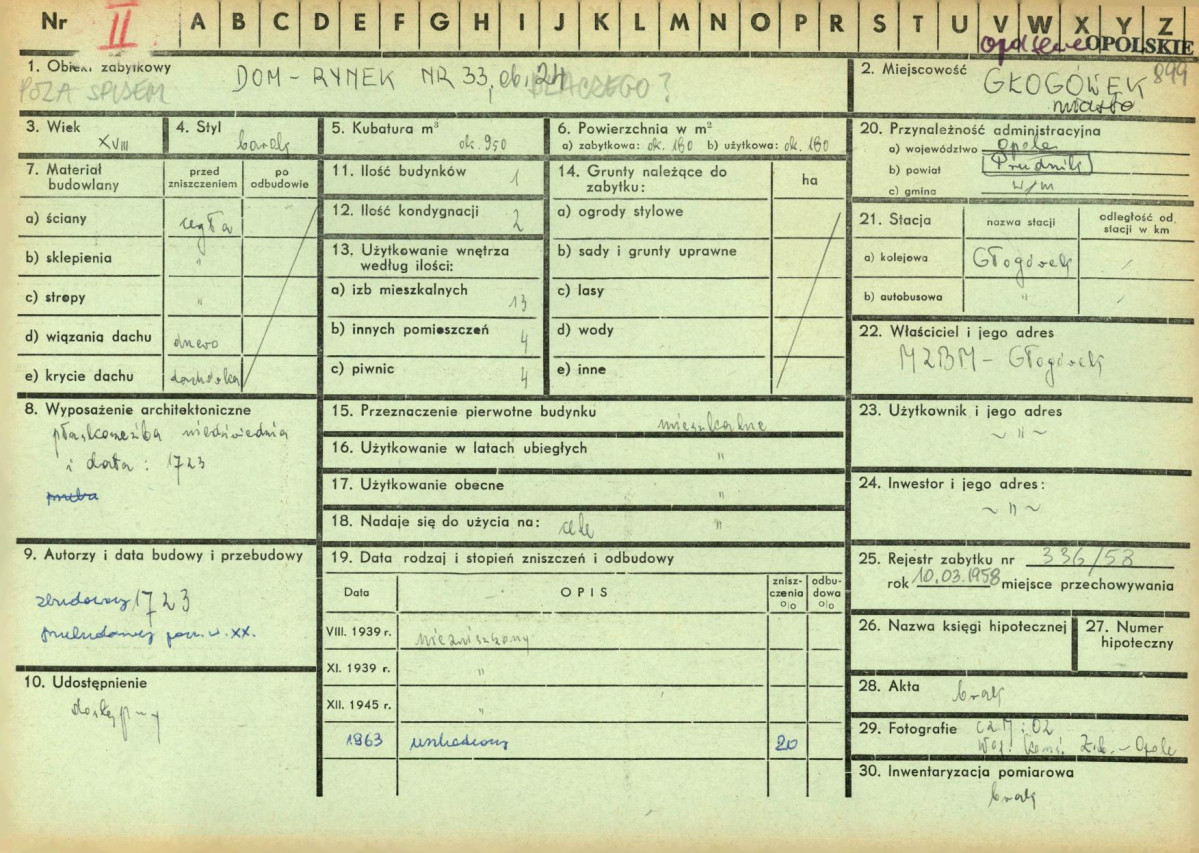 Nr II A B C D E F G H I J K L M N O P R S T U V W X Y Z
opolskie OPOLSKIE
1. Obiekt zabytkowy DOM - RYNEK NR 33, ob. 24
POZA SPISEM DLACZEGO?
2. Miejscowość GŁOGÓWEK 899
miasto
3. Wiek XVIII
4. Styl barok
5. Kubatura m³ ok. 950
6. Powierzchnia w m²
a) zabytkowa: ok. 180 b) użytkowa: ok. 180
20. Przynależność administracyjna
a) województwo Opole
b) powiat Prudnik
c) gmina w/m
7. Materiał budowlany
przed zniszczeniem
po odbudowie
a) ściany cegła
b) sklepienia "
c) stropy "
d) wiązania dachu drewno
e) krycie dachu dachówka
11. Ilość budynków 1
12. Ilość kondygnacji 2
13. Użytkowanie wnętrza
według ilości:
a) izb mieszkalnych 13
b) innych pomieszczeń 4
c) piwnic 4
14. Grunty należące do
zabytku:
ha
a) ogrody stylowe
b) sady i grunty uprawne
c) lasy
d) wody
e) inne
21. Stacja
nazwa stacji
odległość od
stacji w km
a) kolejowa Głogówek /
b) autobusowa " /
22. Właściciel i jego adres
MZBM - Głogówek
8. Wyposażenie architektoniczne
płaskorzeźba niedźwiednia
i data: 1723
15. Przeznaczenie pierwotne budynku mieszkalne
16. Użytkowanie w latach ubiegłych "
17. Użytkowanie obecne "
18. Nadaje się do użycia na: cele "
23. Użytkownik i jego adres
~ " ~
24. Inwestor i jego adres:
~ " ~
9. Autorzy i data budowy i przebudowy
zbudowany 1723
przebudowany pocz. w. XX.
10. Udostępnienie
dostępny
19. Data rodzaj i stopień zniszczeń i odbudowy
Data
OPIS
znisz-
czenia
%
odbu-
dowa
%
VIII. 1939 r. niezniszczony
XI. 1939 r. "
XII. 1945 r. "
1963 uszkodzony 20
25. Rejestr zabytku nr 336/58
rok 10.03.1958 miejsce przechowywania
26. Nazwa księgi hipotecznej
27. Numer
hipoteczny
28. Akta brak
29. Fotografie CZM: 02
Woj. Kons. Zab. - Opole
30. Inwentaryzacja pomiarowa
brak